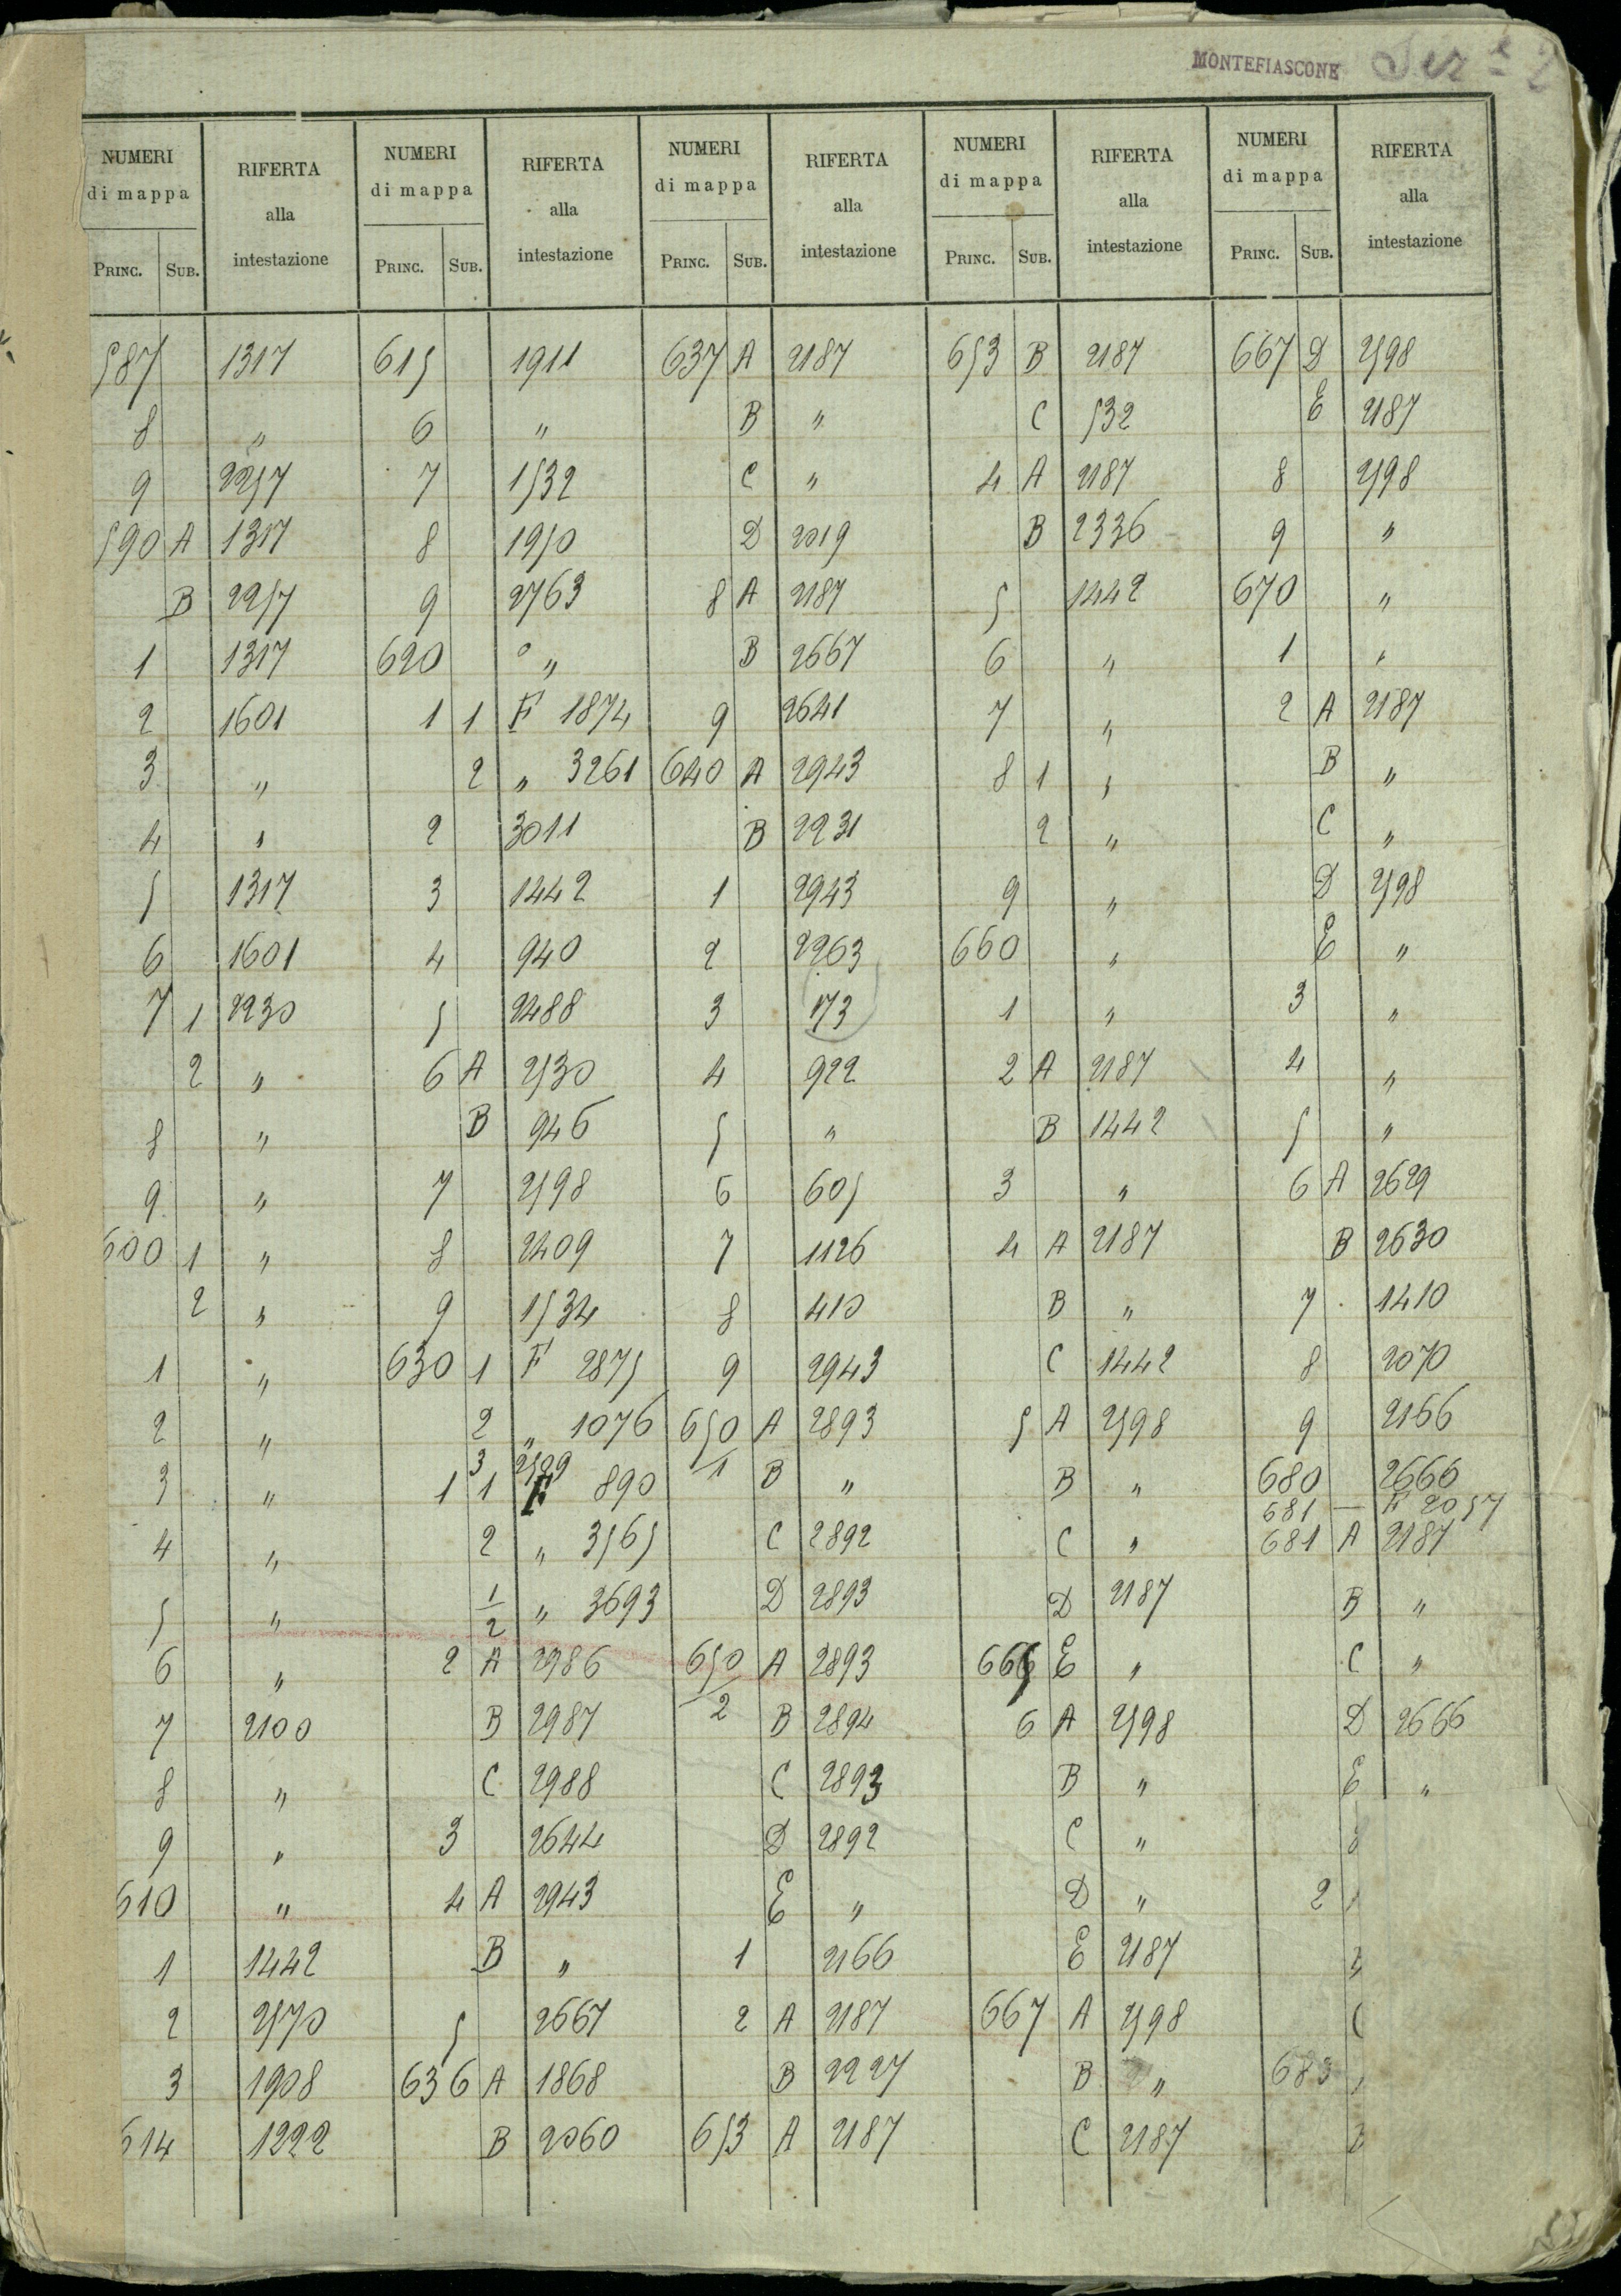 MONTEFIASCONE
NUMERI di mappa
PRINC. SUB.
RIFERTA alla intestazione
587 1317
8 "
9 2257
590 A 1317
B 2257
1 1317
2 1601
3 "
4 "
5 1317
6 1601
7 1 2230
2 "
8 "
9 "
600 1 "
2 "
1 "
2 "
3 "
4 "
5 "
6 "
7 2100
8 "
9 "
610 "
1 1442
2 2570
3 1908
614 1222
NUMERI di mappa
PRINC. SUB.
RIFERTA alla intestazione
615 1911
6 "
7 1532
8 1950
9 2763
620 "
1 1 F 1874
2 " 3261
2 3011
3 1442
4 940
5 2488
6 A 2530
B 946
7 2598
8 2409
9 1534
630 1 F 2875
2 " 1076
3 2509
1 1 F 890
2 " 3565
1/2 " 3693
2 A 2986
B 2987
C 2988
3 2644
4 A 2943
B "
5 2667
636 A 1868
B 2060
NUMERI di mappa
PRINC. SUB.
RIFERTA alla intestazione
637 A 2187
B "
C "
D 2019
8 A 2187
B 2667
9 2641
640 A 2943
B 2231
1 2943
2 2263
3 173
4 922
5 "
6 605
7 1126
8 410
9 2943
650/1 A 2893
B "
C 2892
D 2893
650/2 A 2893
B 2894
C 2893
D 2892
E "
1 2166
2 A 2187
B 2227
653 A 2187
NUMERI di mappa
PRINC. SUB.
RIFERTA alla intestazione
653 B 2187
C 532
4 A 2187
B 2336
5 1442
6 "
7 "
8 1 "
2 "
9 "
660 "
1 "
2 A 2187
B 1442
3 "
4 A 2187
B "
C 1442
5 A 2598
B "
C "
D 2187
665 E "
6 A 2598
B "
C "
D "
E 2187
667 A 2598
B "
C 2187
NUMERI di mappa
PRINC. SUB.
RIFERTA alla intestazione
667 D 2598
E 2187
8 2598
9 "
670 "
1 "
2 A 2187
B "
C "
D 2598
E "
3 "
4 "
5 "
6 A 2629
B 2630
7 1410
8 2070
9 2166
680 2666
681 — F 2057
681 A 2187
B "
C "
D 2666
E "
2
683